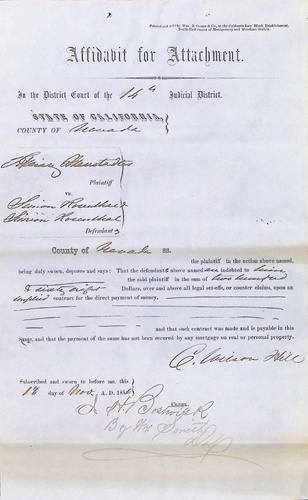 Printed and sold by Wm. B. Cooke & Co., at the California Law Blank Establishment,
North-East corner of Montgomery and Merchant Streets.
Affidavit for Attachment.
In the District Court of the 14th Judicial District.
STATE OF CALIFORNIA,
COUNTY OF Nevada
Plaintiff
vs.
Simon Rosenthal &
Simon Rosenthal
Defendants
County of Nevada ss.
the plaintiff in the action above named,
being duly sworn, deposes and says: That the defendants above named are indebted to
the said plaintiff in the sum of two hundred
& sixty eight Dollars, over and above all legal set-offs, or counter claims, upon an
implied contract for the direct payment of money.
and that such contract was made and is payable in this
State, and that the payment of the same has not been secured by any mortgage on real or personal property.
C. Wilson Hill
Subscribed and sworn to before me, this
18 day of Nov A. D. 185
J. H. Bostwick CLERK.
By Wm Smith
Dep